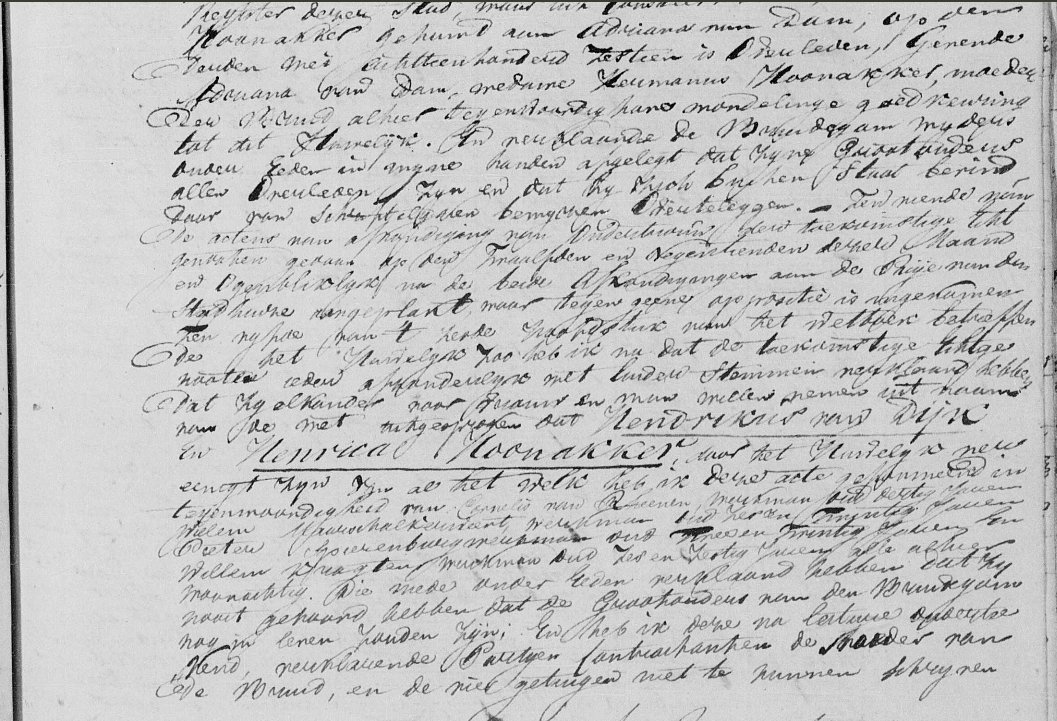 Register dezer Stad, waar uit
Hoonakker gehuwd aan Adriana van Dam, op den
achttienhonderd Zestien is Overleden, Gemelde
Adriana van Dam, weduwe Hermanus Hoonakker, moeder
der Bruid alhier tegenwoordig hare mondelinge goedkeuring
tot dit Huwelijk. En verklaarde de Bruidegom mydens
onder Eeden in myne handen afgelegt dat Zyne Grootouders
allen Overleden Zyn en dat hy Zich buiten Staat bevind
daar van Schriftelijken bewyzen Overteleggen. – Ten vierde van
de actens van afkondiging van Ondertrouw der toekomstige Echt
genooten gedaan op den Twaalfden en Negentienden dezer Maand
en Ogenbliklyk na de beide Afkondigingen aan de Puije van den
Stadhuize aangeplakt, waar tegen geene oppositie is ingekomen
Ten vyfde van 't Zesde Hoofdstuk van het wetboek betreffen
de het Huwelyk Zoo heb ik na dat de toekomstige Echtge
nooten ieder afzonderlyk met luider Stemmen verklaard hebben
dat Zy elkander voor Vrouw en man willen nemen uit naam
van de wet uitgesproken dat Hendrikus van Dijk
En Henrica Hoonakker, door het Huwelyk ver
eenigt Zyn Van al het welk heb ik deze acte geformeerd in
tegenwoordigheid van Cornelis van werkman oud dertig Jaren
Willem werkman oud Zes en Twintig Jaren
Pieter Spierenburg werkman oud Twee en Twintig Jaren En
Willem werkman oud Zes en Zestig Jaren alle alhier
woonachtig. Die mede onder Eeden verklaard hebben dat Zy
nooit gehoord hebben dat de Grootouders van den Bruidegom
nog in leven Zouden Zyn; En heb ik deze na lecture Onderteek
kend, verklarende Partyen Contractanten de moeder van
de Bruid, en de vier getuigen niet te kunnen schryven